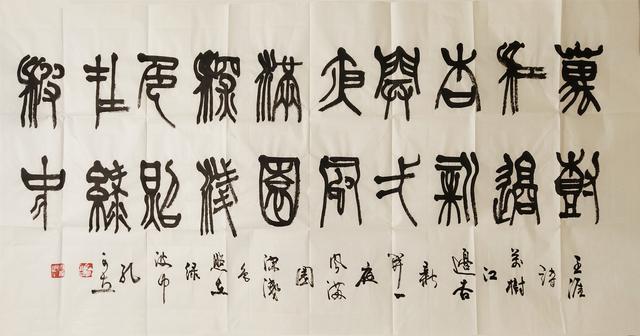 萬樹
江邊
杏新
開弌
夜風
滿園
深淺
色照
在綠
波中
王涯
詩
萬樹
江
邊杏
新
開一
夜
風滿
園
深淺
色
照在
綠
波中
孔